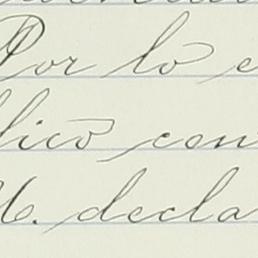 Por lo e
lico con
U. decla